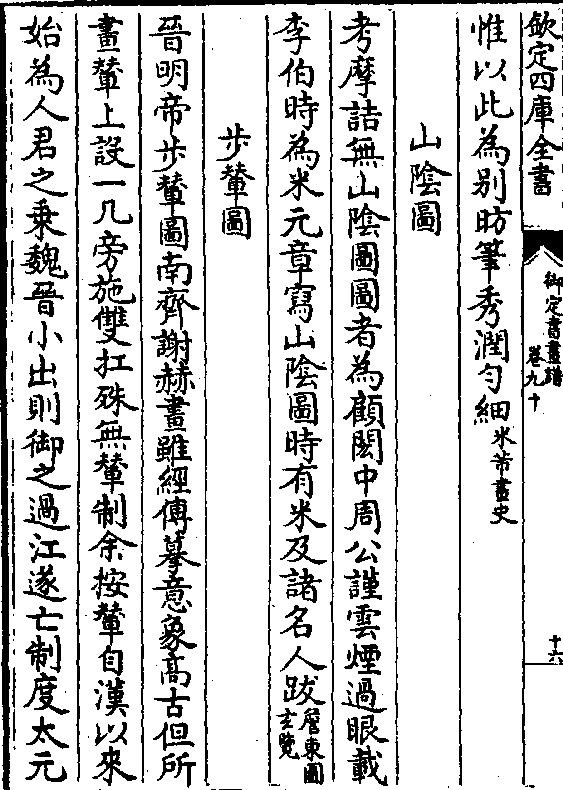 欽定四庫全書
御定書畫譜
卷九十
十六
惟以此為别昉筆秀潤勻細米芾畫史
山陰圖
考摩詰無山陰圖圖者為顧閎中周公謹雲煙過眼載
李伯時為米元章寫山陰圖時有米及諸名人跋詹東圖玄覽
步輦圖
晉明帝步輦圖南齊謝赫畫雖經傳摹意象高古但所
畫輦上設一几旁施雙扛殊無輦制余按輦自漢以來
始為人君之乗魏晉小出則御之過江遂亡制度太元